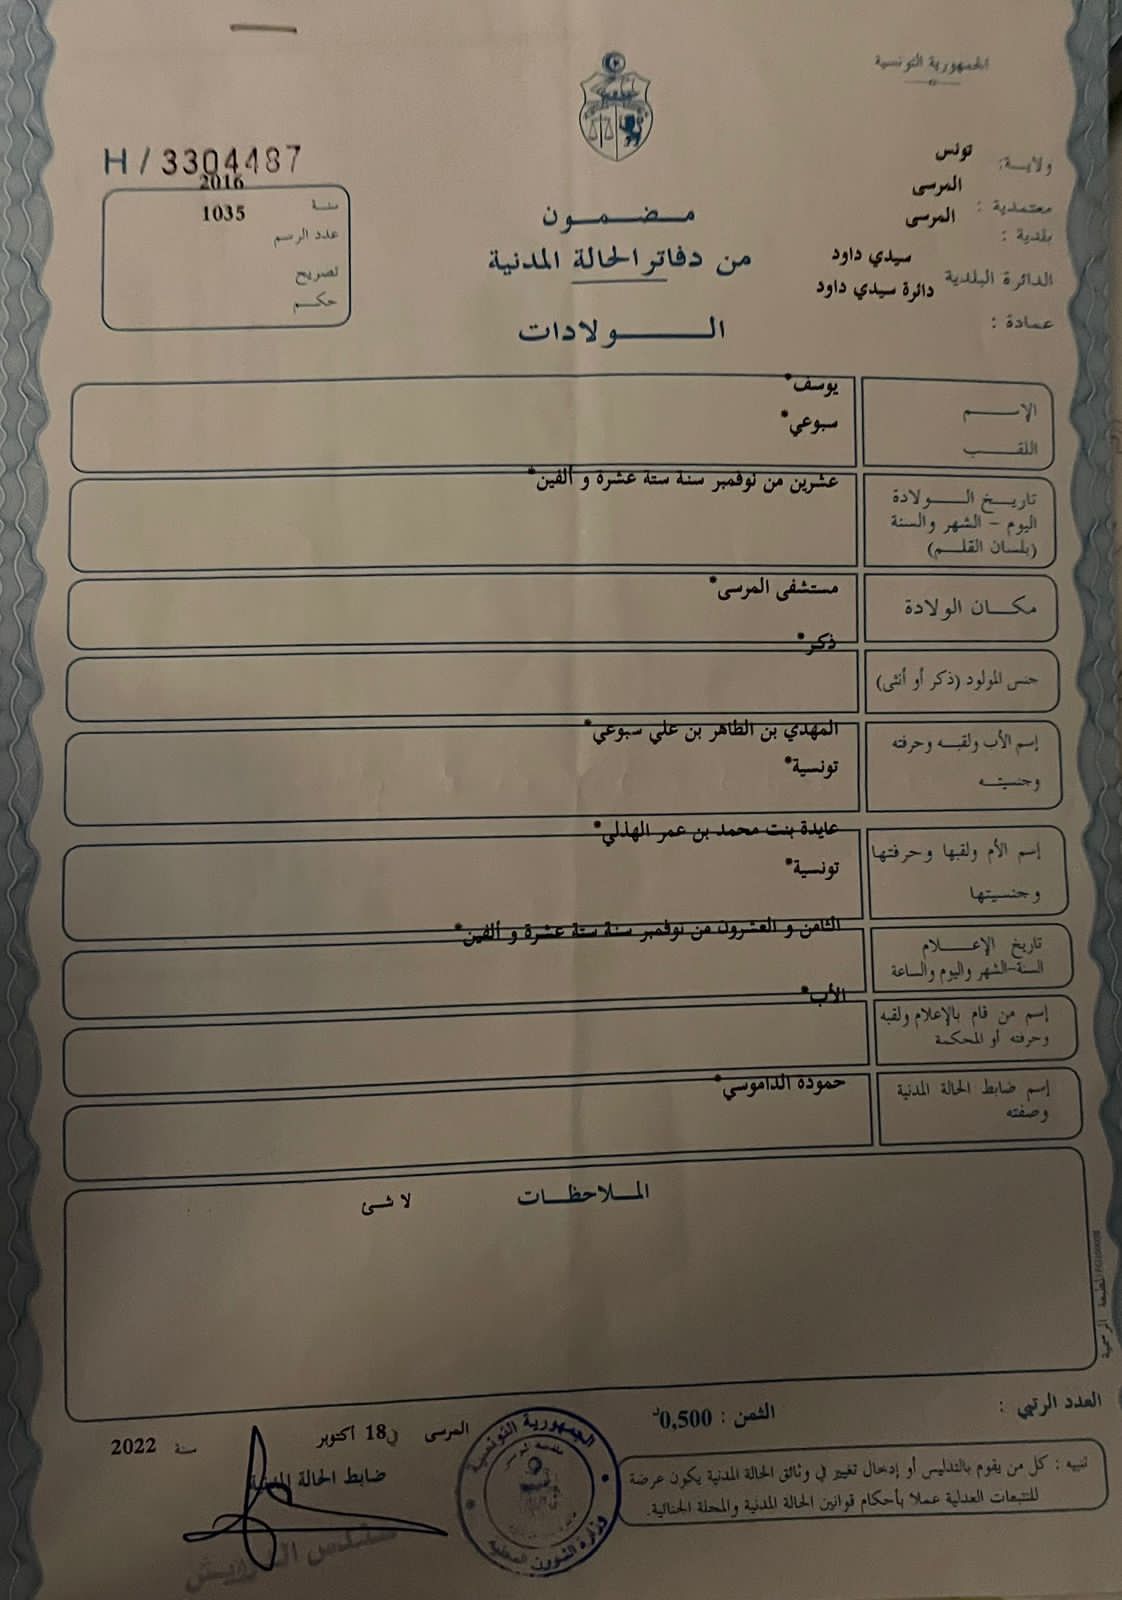 الجمهورية التونسية
ولايـــة: تونس
معتمدية : المرسى
بلدية : المرسى
الدائرة البلدية سيدي داود
عمادة : دائرة سيدي داود
H / 3304487
سنـة 2016
عدد الرسم 1035
تصريح
حكـــم
مـــضـــمـــون
من دفاتر الحالة المدنية
الـــــولادات
الإســـــم يوسف*
اللقـــب سبوعي*
تاريـــخ الـــــولادة
اليوم - الشهر والسنة
(بلسان القلـــم)
عشرين من نوفمبر سنة ستة عشرة و ألفين*
مكـــان الولادة مستشفى المرسى*
جنس المولود (ذكر أو أنثى) ذكر*
إسم الأب ولقبـــه وحرفته
وجنسيتـــه
المهدي بن الطاهر بن علي سبوعي*
تونسية*
إسم الأم ولقبها وحرفتها
وجنسيتها
عايدة بنت محمد بن عمر الهذلي*
تونسية*
تاريخ الإعـــــلام
السنة-الشهر واليوم والساعة
الثامن و العشرون من نوفمبر سنة ستة عشرة و ألفين*
إسم من قام بالإعلام ولقبه
وحرفته أو المحكمة
الأب*
إسم ضابط الحالة المدنية
وصفته
حمودة الداموسي*
المـــلاحظـــات
لا شئ
المطبعة الرسمية
العدد الرتبي :
الثمن : 0,500د
المرسى في 18 اكتوبر سنة 2022
ضابط الحالة المدنية
تنبيه : كل من يقوم بالتدليس أو إدخال تغيير في وثائق الحالة المدنية يكون عرضة
للتتبعات العدلية عملا بأحكام قوانين الحالة المدنية والمجلة الجنائية.
الجمهورية التونسية
وزارة الشؤون المحلية